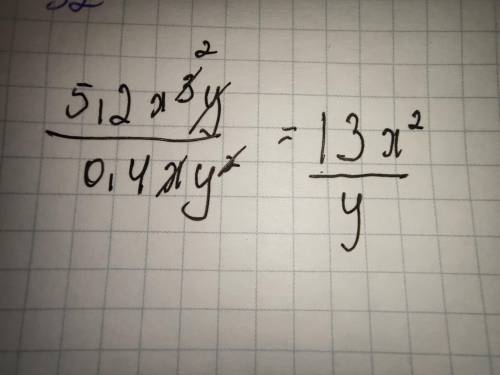 52
2
5,2x³y
0,4xy² = 13x²
y